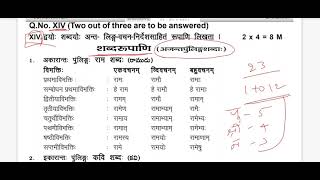 Q.No. XIV (Two out of three are to be answered)
XIV द्वयोः शब्दयोः अन्त- लिङ्ग-वचन-निर्देशसहितं रूपाणि लिखत । 2 x 4 = 8 M
शब्दरूपाणि (अजन्तपुंलिङ्गशब्दाः)
1. अकारान्तः पुंलिङ्गः राम शब्दः
विभक्तिः एकवचनम् द्विवचनम् बहुवचनम्
प्रथमाविभक्तिः रामः रामौ रामाः
सम्बोधन प्रथमाविभक्तिः हे राम हे रामौ हे रामाः
द्वितीयाविभक्तिः रामम् रामौ रामान्
तृतीयाविभक्तिः रामेण रामाभ्याम् रामैः
चतुर्थीविभक्तिः रामाय रामाभ्याम् रामेभ्यः
पञ्चमीविभक्तिः रामात् रामाभ्याम् रामेभ्यः
षष्ठीविभक्तिः रामस्य रामयोः रामाणाम्
सप्तमीविभक्तिः रामे रामयोः रामेषु
2. इकारान्तः पुंलिङ्गः कवि शब्दः
23
1 to 12
पु - 5
स्त्री - 4
न - 3